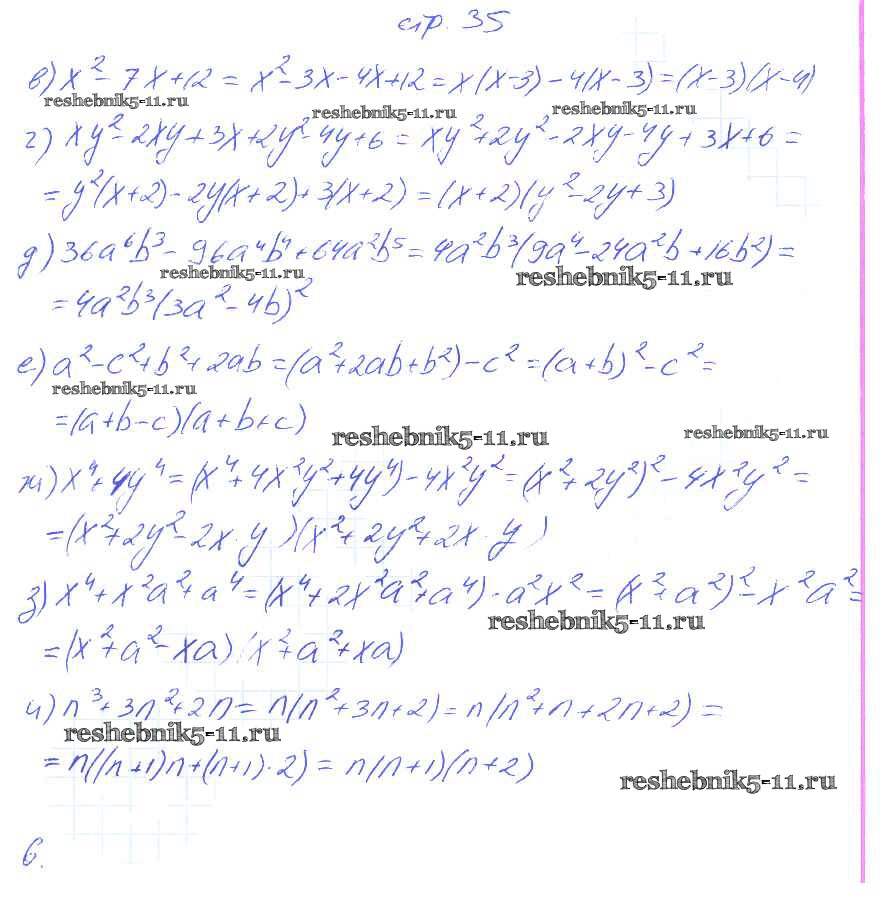 стр. 35
в) x² - 7x + 12 = x² - 3x - 4x + 12 = x(x-3) - 4(x-3) = (x-3)(x-4)
reshebnik5-11.ru reshebnik5-11.ru reshebnik5-11.ru
г) xy² - 2xy + 3x + 2y² - 4y + 6 = xy² + 2y² - 2xy - 4y + 3x + 6 =
= y²(x+2) - 2y(x+2) + 3(x+2) = (x+2)(y² - 2y + 3)
д) 36a⁶b³ - 96a⁴b⁴ + 64a²b⁵ = 4a²b³(9a⁴ - 24a²b + 16b²) =
reshebnik5-11.ru reshebnik5-11.ru
= 4a²b³(3a² - 4b)²
е) a² - c² + b² + 2ab = (a² + 2ab + b²) - c² = (a+b)² - c² =
reshebnik5-11.ru
= (a+b-c)(a+b+c)
reshebnik5-11.ru reshebnik5-11.ru
ж) x⁴ + 4y⁴ = (x⁴ + 4x²y² + 4y⁴) - 4x²y² = (x² + 2y²)² - 4x²y² =
= (x² + 2y² - 2x·y)(x² + 2y² + 2x·y)
з) x⁴ + x²a² + a⁴ = (x⁴ + 2x²a² + a⁴) - a²x² = (x² + a²)² - x²a² =
reshebnik5-11.ru
= (x² + a² - xa)(x² + a² + xa)
и) n³ + 3n² + 2n = n(n² + 3n + 2) = n(n² + n + 2n + 2) =
reshebnik5-11.ru
= n((n+1)n + (n+1)·2) = n(n+1)(n+2)
reshebnik5-11.ru
6.